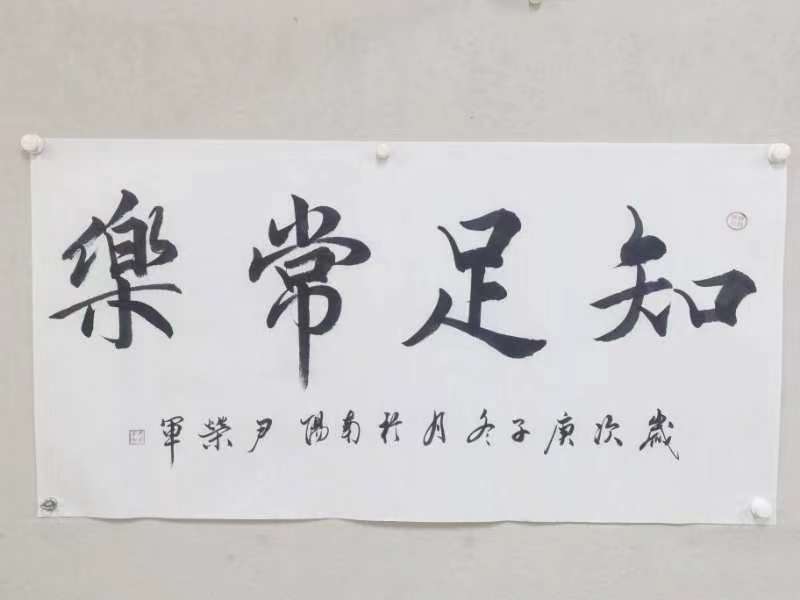 知足常樂
歲次庚子冬月於南陽尹榮軍